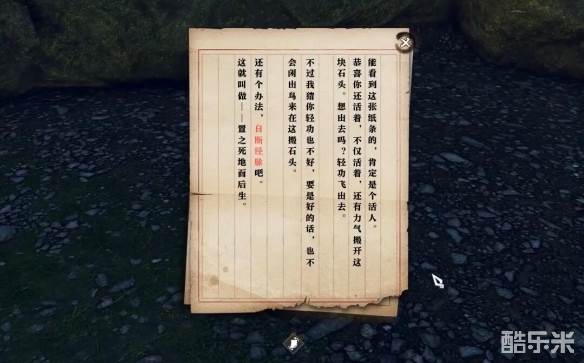 能看到这张纸条的，肯定是个活人。
恭喜你还活着，不仅活着，还有力气搬开这
块石头。想出去吗？轻功飞出去。
不过我猜你轻功也不好，要是好的话，也不
会闲出鸟来在这搬石头。
还有个办法，自断经脉吧。
这就叫做——置之死地而后生。
酷乐米